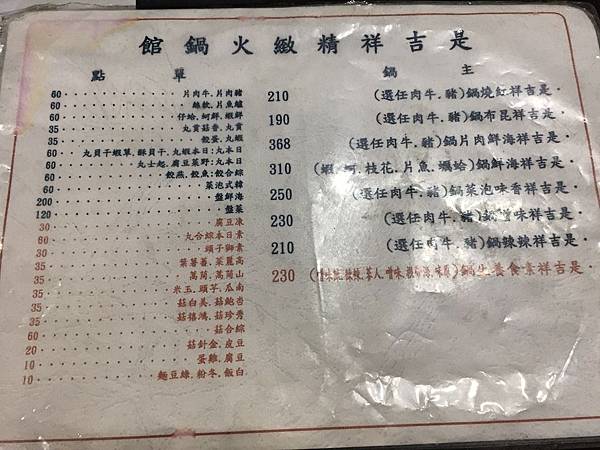 是吉祥精緻火鍋館
主鍋
・是吉祥紅燒鍋(豬.牛肉任選) 210
・是吉祥昆布鍋(豬.牛肉任選) 190
・是吉祥海鮮肉片鍋(豬.牛肉任選) 368
・是吉祥海鮮鍋(蛤蠣.魚片.花枝.蚵.蝦) 310
・是吉祥香味泡菜鍋(豬.牛肉任選) 250
・是吉祥味噌鍋(豬.牛肉任選) 230
・是吉祥辣辣鍋(豬.牛肉任選) 210
・是吉祥素食養生鍋 230
單點
豬肉片.牛肉片 60
鱸魚片.軟絲 60
鮮蝦.鮮蚵.蛤仔 60
貢丸.香菇貢丸 35
蝦丸.蛋餃 35
日本丸:日本蝦丸.干貝酥.單蝦干貝丸 60
日本丸:野菜豆腐.起士丸 60
綜合餃:魚餃.燕餃 60
韓式泡菜
海鮮盤 200
菜盤 120
凍豆腐 30
素日本綜合丸 30
素獅子頭 30
高麗菜.蕃薯葉 35
山茼萵.茼萵 35
南瓜.芋頭.玉米 35
杏鮑菇.美白菇 35
秀珍菇.鴻禧菇 35
綜合菇 60
豆皮.金針菇 20
豆腐.雞蛋 10
白飯.冬粉.綠豆麵 10